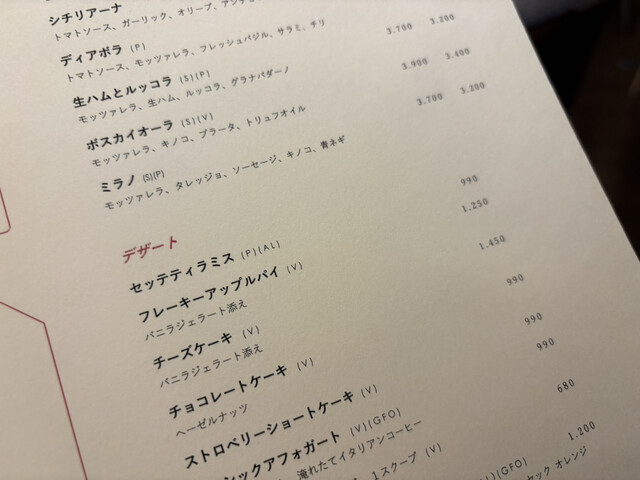 シチリアーナ
トマトソース、ガーリック、オリーブ、アンチョ
ディアボラ (P)
トマトソース、モッツァレラ、フレッシュバジル、サラミ、チリ 3.700 3.200
生ハムとルッコラ (S)(P)
モッツァレラ、生ハム、ルッコラ、グラナパダーノ 3.900 3.400
ボスカイオーラ (S)(V)
モッツァレラ、キノコ、ブラータ、トリュフオイル 3.700 3.200
ミラノ (S)(P)
モッツァレラ、タレッジョ、ソーセージ、キノコ、青ネギ
デザート
セッテティラミス (P)(AL) 990
フレーキーアップルパイ (V) 1.250
バニラジェラート添え
チーズケーキ (V) 1.450
バニラジェラート添え
チョコレートケーキ (V) 990
ヘーゼルナッツ
ストロベリーショートケーキ (V) 990
シックアフォガート (V)(GFO) 990
淹れたてイタリアンコーヒー
1スクープ (V) 680
(GFO) 1.200
セック オレンジ